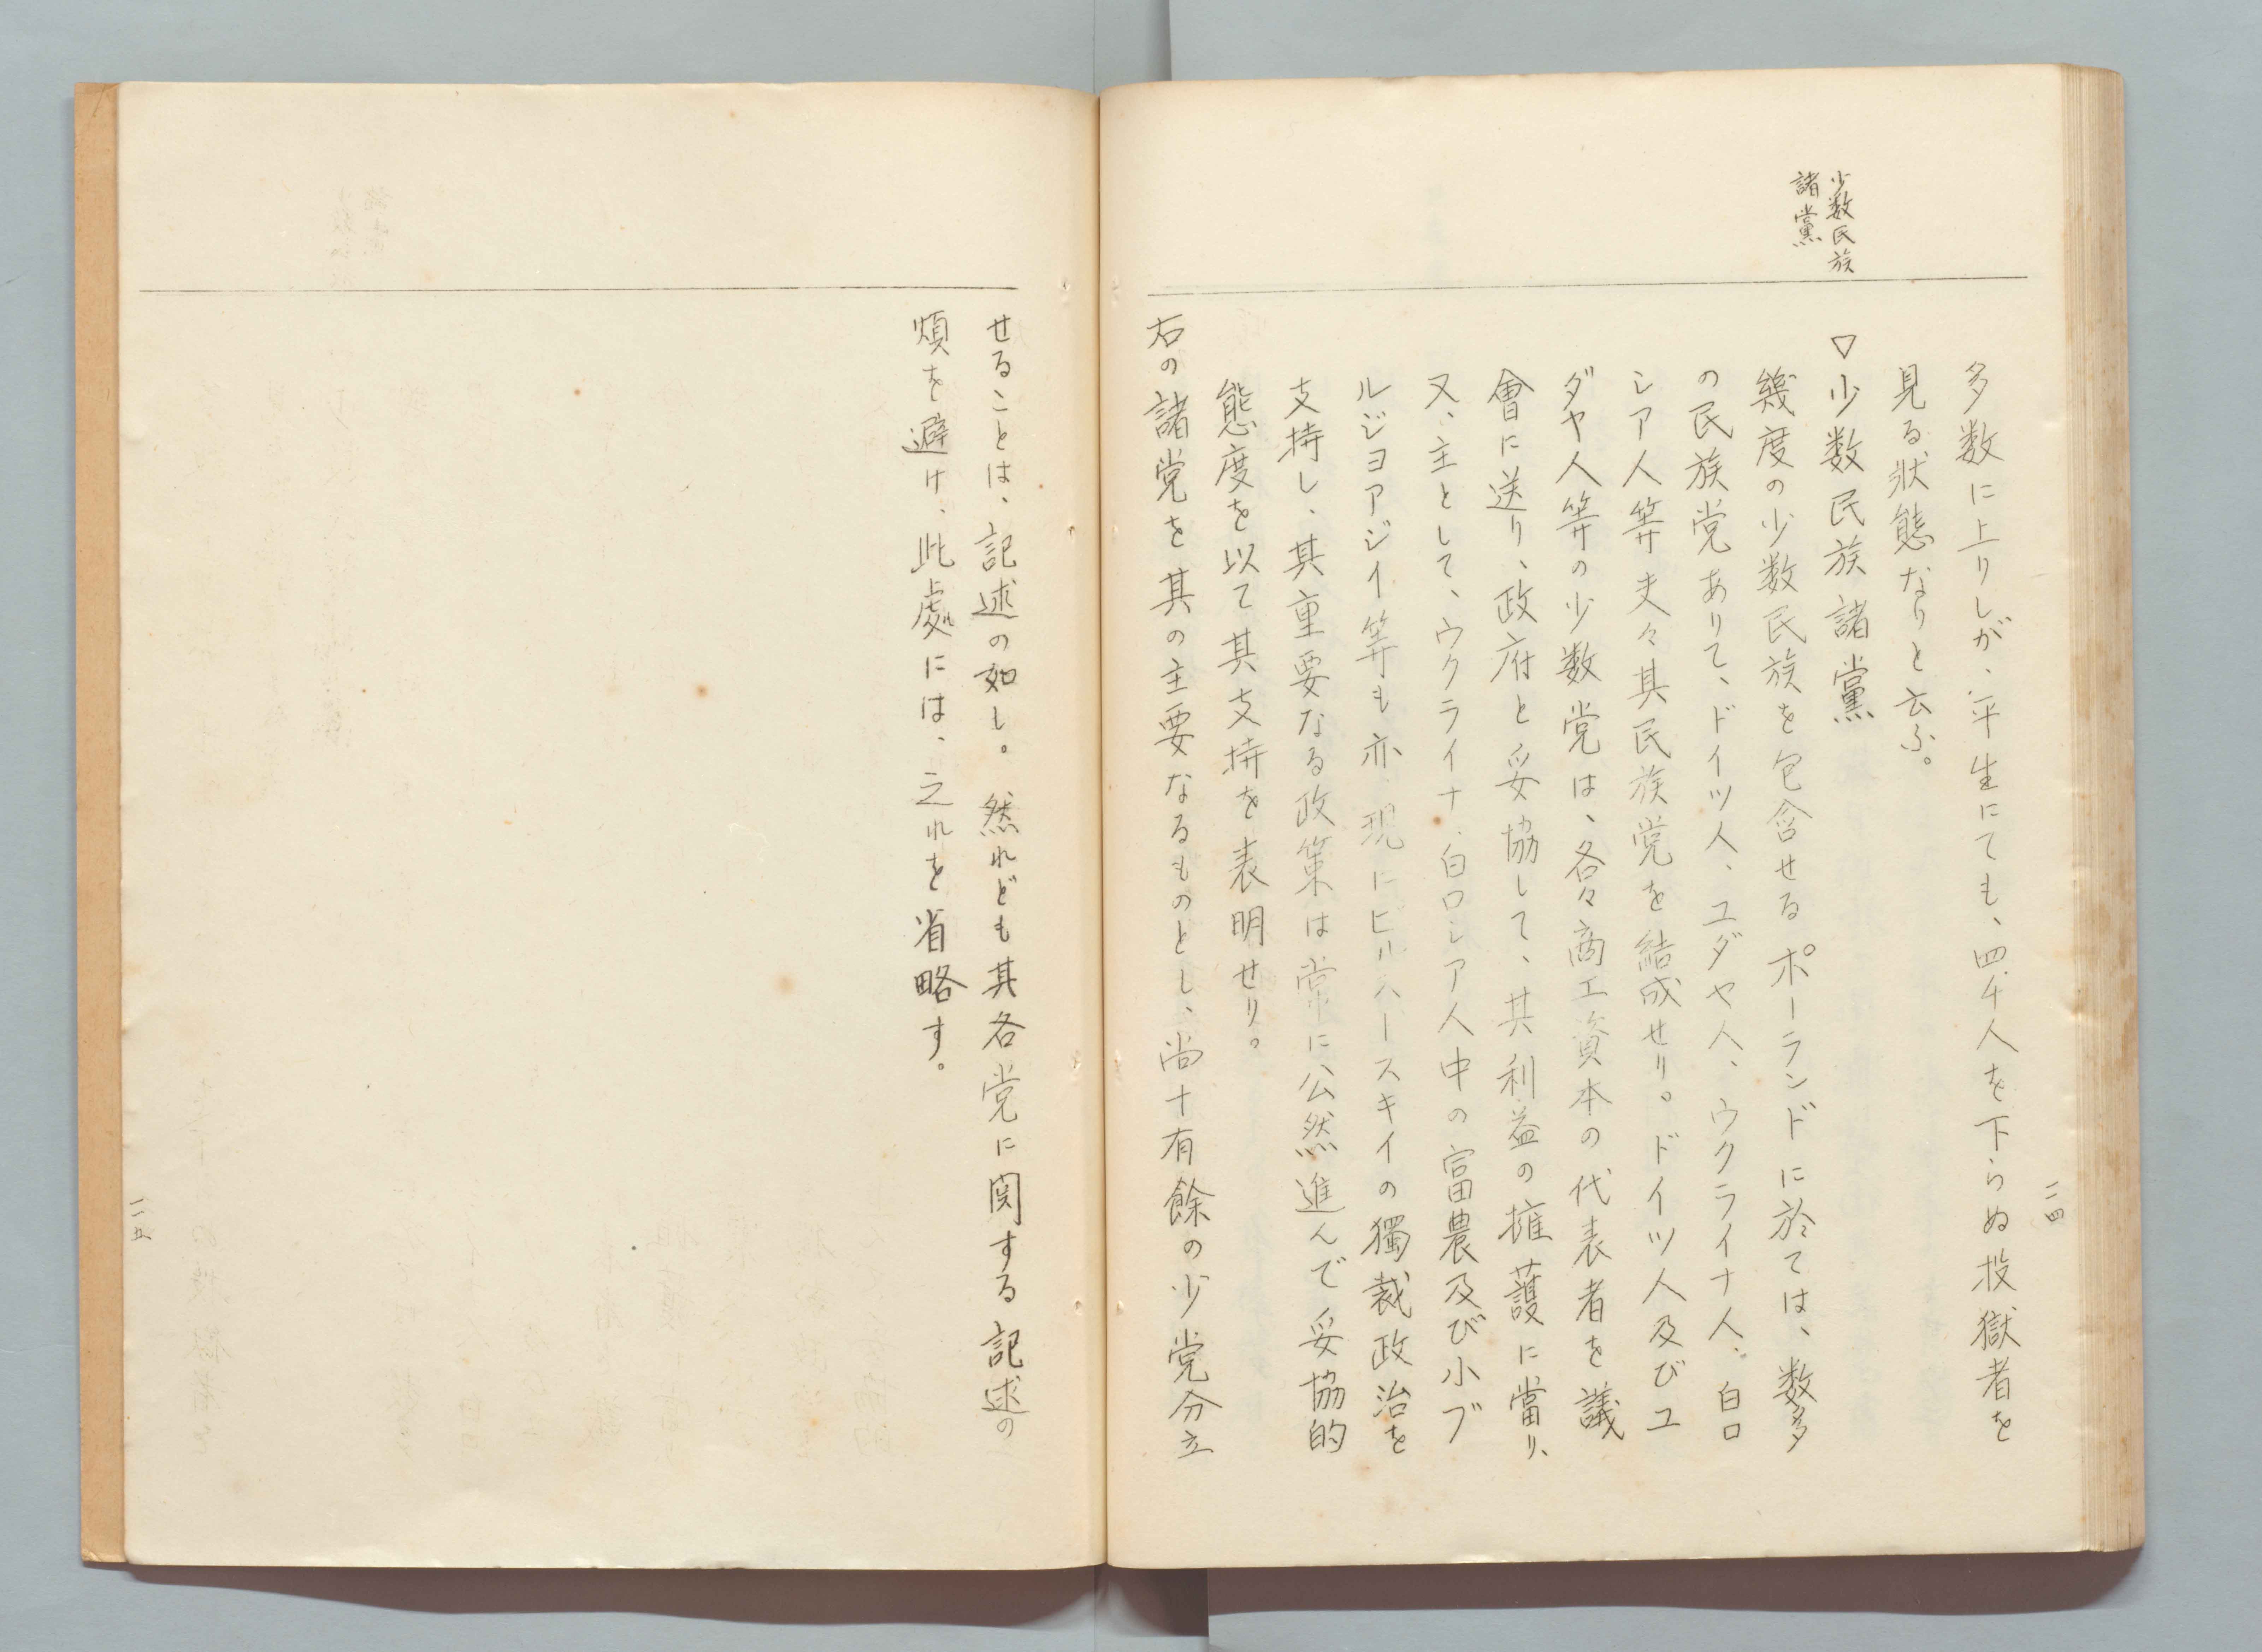 少数民族
諸黨
多数に上りしが、平生にても、四千人を下らぬ投獄者を
見る状態なりと云ふ。
▽少数民族諸黨
幾度の少数民族を包含せるポーランドに於ては、数多
の民族党ありて、ドイツ人、ユダヤ人、ウクライナ人、白ロ
シア人等夫々其民族党を結成せり。ドイツ人及びユ
ダヤ人等の少数党は、各々商工資本の代表者を議
會に送り、政府と妥協して、其利益の擁護に當り、
又、主として、ウクライナ、白ロシア人中の富農及び小ブ
ルジヨアジイ等も亦、現にピルスースキイの獨裁政治を
支持し、其重要なる政策は常に公然進んで妥協的
態度を以て其支持を表明せり。
右の諸党を其の主要なるものとし、尚十有餘の少党分立
一一四
せることは、記述の如し。然れども其各党に関する記述の
煩を避け、此處には、之れを省略す。
一一五